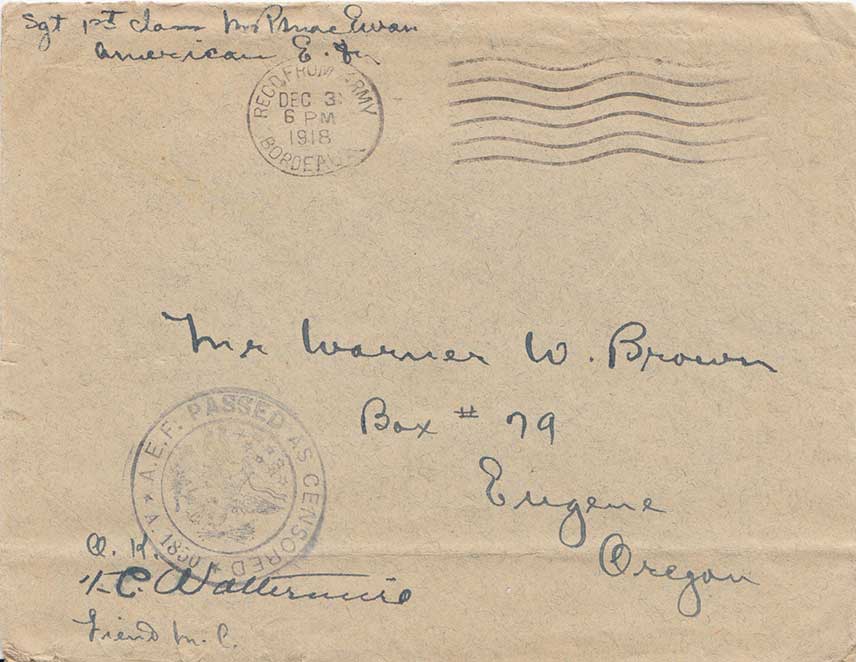 Sgt 1st class Wm P MacEwan
American E.
REC'D FROM ARMY
DEC 3
6 PM
1918
BORDEAUX
Mr Warner W. Brown
Box # 79
Eugene
Oregon
A.E.F. PASSED AS CENSORED
A. 1850
O. K.
C. Wattermire
M. C.